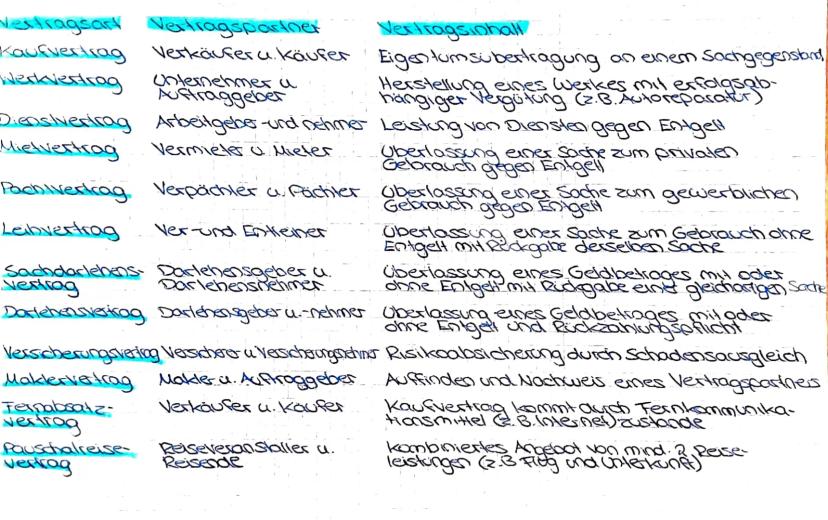 Vertragsart Vertragspartner Vertragsinhalt
Kaufvertrag Verkäufer u. Käufer Eigentumsübertragung an einem Sachgegenstand
Werkvertrag Unternehmer u Herstellung eines Werkes mit erfolgsab-
Auftraggeber hängiger Vergütung (z.B. Autoreparatur)
Dienstvertrag Arbeitgeber-und nehmer Leistung von Diensten gegen Entgelt
Mietvertrag Vermieter u. Mieter Überlassung einer Sache zum privaten
Gebrauch gegen Entgelt
Pachtvertrag Verpächter u. Pächter Überlassung einer Sache zum gewerblichen
Gebrauch gegen Entgelt
Leihvertrag Ver-und Entleiher Überlassung einer Sache zum Gebrauch ohne
Entgelt mit Rückgabe derselben Sache
Sachdarlehens- Darlehensgeber u. Überlassung eines Geldbetrages mit oder
vertrag Darlehensnehmer ohne Entgelt mit Rückgabe einer gleichartigen Sache
Darlehensvertrag Darlehensgeber u.-nehmer Überlassung eines Geldbetrages mit oder
ohne Entgelt und Rückzahlungspflicht
Versicherungsvertrag Versicherer u Versicherungsnehmer Risikoabsicherung durch Schadensausgleich
Maklervertrag Makler u. Auftraggeber Auffinden und Nachweis eines Vertragspartners
Fernabsatz- Verkäufer u. Käufer Kaufvertrag kommt durch Fernkommunika-
vertrag tionsmittel (z.B. Internet) zustande
Pauschalreise- Reiseveranstalter u. kombiniertes Angebot von mind. 2 Reise-
vertrag Reisende leistungen (z.B Flug und Unterkunft)